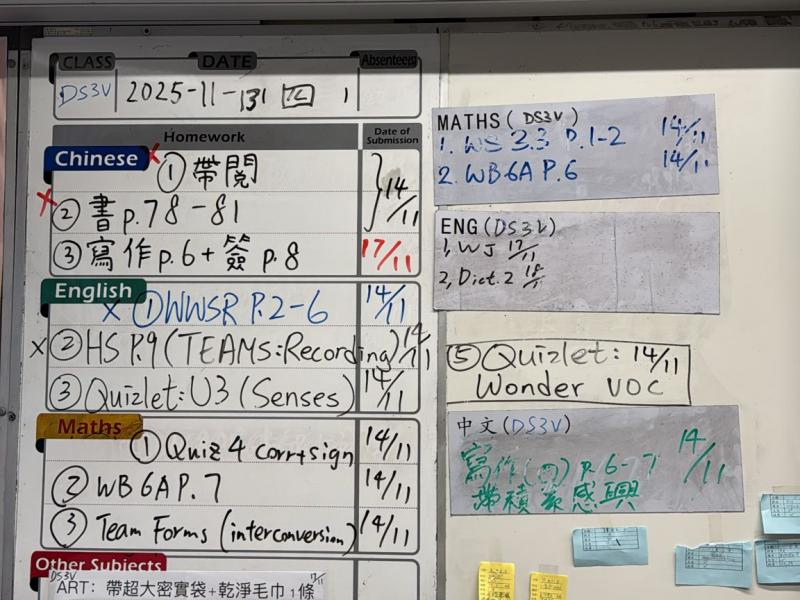 CLASS DATE Absentee(s)
DS3V 2025-11-13 四 1
Homework Date of Submission
Chinese ① 帶閱
② 書 p.78-81 14/11
③ 寫作 p.6 + 簽 p.8 17/11
English ① WWSR P.2-6 14/11
② HS P.9 (TEAMS: Recording) 14/11
③ Quizlet: U3 (Senses) 14/11
Maths ① Quiz 4 corr+sign 14/11
② WB 6A P.7 14/11
③ Team Forms (interconversion) 14/11
Other Subjects
DS3V
ART: 帶超大密實袋+乾淨毛巾1條 17/11
MATHS (DS3V)
1. WS 3.3 P.1-2 14/11
2. WB 6A P.6 14/11
ENG (DS3V)
1, WJ 17/11
2, Dict. 2
⑤ Quizlet: 14/11
Wonder VOC
中文 (DS3V)
寫作(四) p.6-7 14/11
帶積 感興